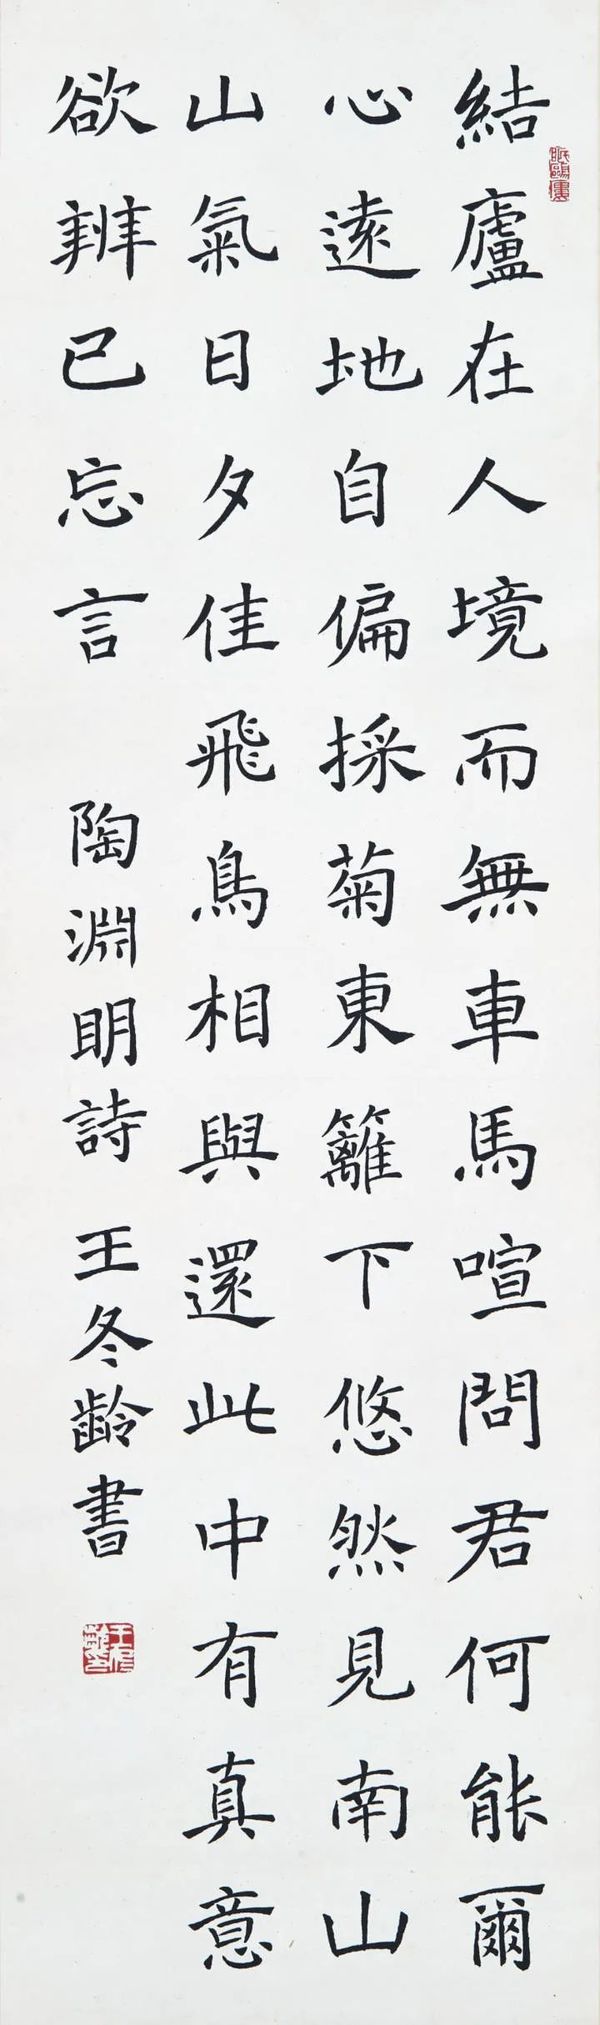 結廬在人境而無車馬喧問君何能爾
心遠地自偏採菊東籬下悠然見南山
山氣日夕佳飛鳥相與還此中有真意
欲辨已忘言
陶淵明詩 王冬齡書